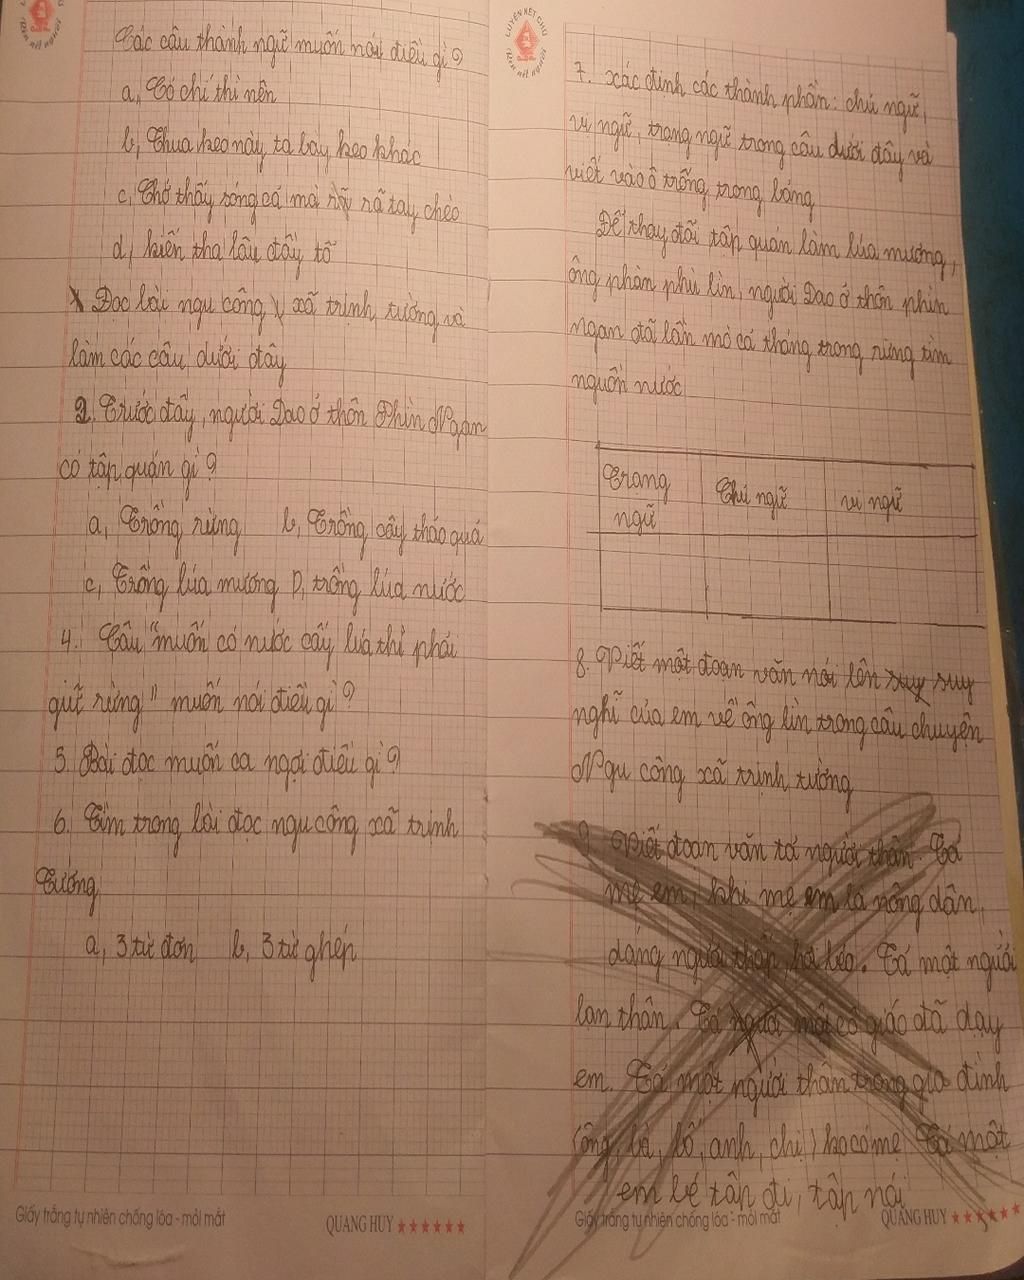 Các câu thành ngữ muốn nói điều gì?
a, Có chí thì nên
b, Thua keo này, ta bày keo khác
c, Chớ thấy sóng cả mà rã tay chèo
d, kiến tha lâu đầy tổ
Đọc lài ngu công xã trịnh tường và
làm các câu dưới đây
2. Trước đây, người Dao ở thôn Phìn Ngan
có tập quán gì?
a, Trồng rừng b, Trồng cây thảo quả
c, Trồng lúa mương D, trồng lúa nước
4. Câu "muốn có nước cấy lúa thì phải
giữ rừng" muốn nói điều gì?
5. Bài đọc muốn ca ngợi điều gì?
6. Tìm trong lài đọc ngu công xã trịnh
Tường
a, 3 từ đơn b, 3 từ ghép
Giấy trắng tự nhiên chống lóa - mỏi mắt QUANG HUY
LUYỆN NÉT CHỮ
Rèn nết người
7. xác định các thành phần: chủ ngữ,
vị ngữ, trạng ngữ trong câu dưới đây và
viết vào ô trống trong bảng
Để thay đổi tập quán làm lúa mương,
ông phàn phù lìn, người Dao ở thôn phìn
ngan đã lần mò cả tháng trong rừng tìm
nguồn nước
Trạng ngữ Chủ ngữ vị ngữ
8. Viết một đoạn văn nói lên suy
nghĩ của em về ông lìn trong câu chuyện
Ngu công xã trịnh tường
9. Viết đoạn văn tả người thân. Tả
mẹ em, khi mẹ em là nông dân,
dáng người thấp, hơi béo. Tả một người
lạn thân. Tả một cô giáo đã dạy
em. Tả một người thân trong gia đình
(ông, bà, bố, anh, chị) ko có mẹ Tả một
em bé tập đi, tập nói
Giấy trắng tự nhiên chống lóa - mỏi mắt QUANG HUY